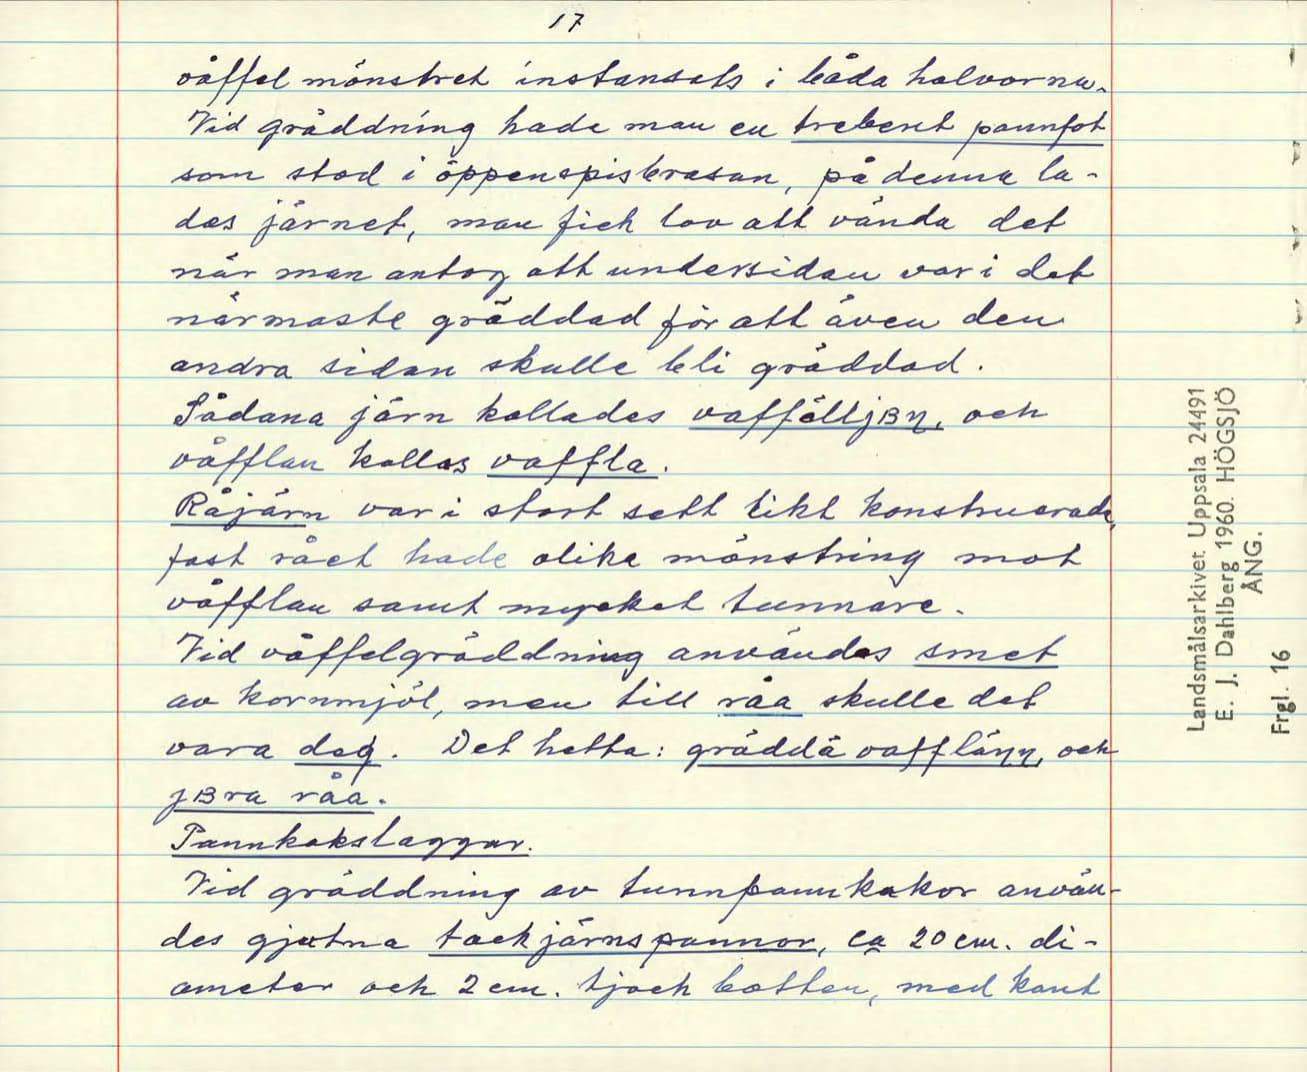 17
våffel mönstret instansats i båda halvorna.
Vid gräddning hade man en trebent pannfot
som stod i öppenspisbrasan, på denna la-
des järnet, man fick lov att vända det
när man antog att undersidan var i det
närmaste gräddad för att även den
andra sidan skulle bli gräddad.
Sådana järn kallades och
våfflan kallas vaffla.
Råjärn var i stort sett likt konstruerade,
fast rået hade olika mönstring mot
våfflan samt mycket tunnare.
Vid våffelgräddning användes smet
av kornmjöl, men till råa skulle det
vara deg. Det hette: gräddä och
råa.
Pannkakslaggar.
Vid gräddning av tunnpannkakor använ-
des gjutna tackjärnspannor, ca 20 cm. di-
ameter och 2 cm. tjock botten, med kant
Landsmålsarkivet Uppsala 24491
E. J. Dahlberg 1960. HÖGSJÖ
ÅNG.
Frgl. 16